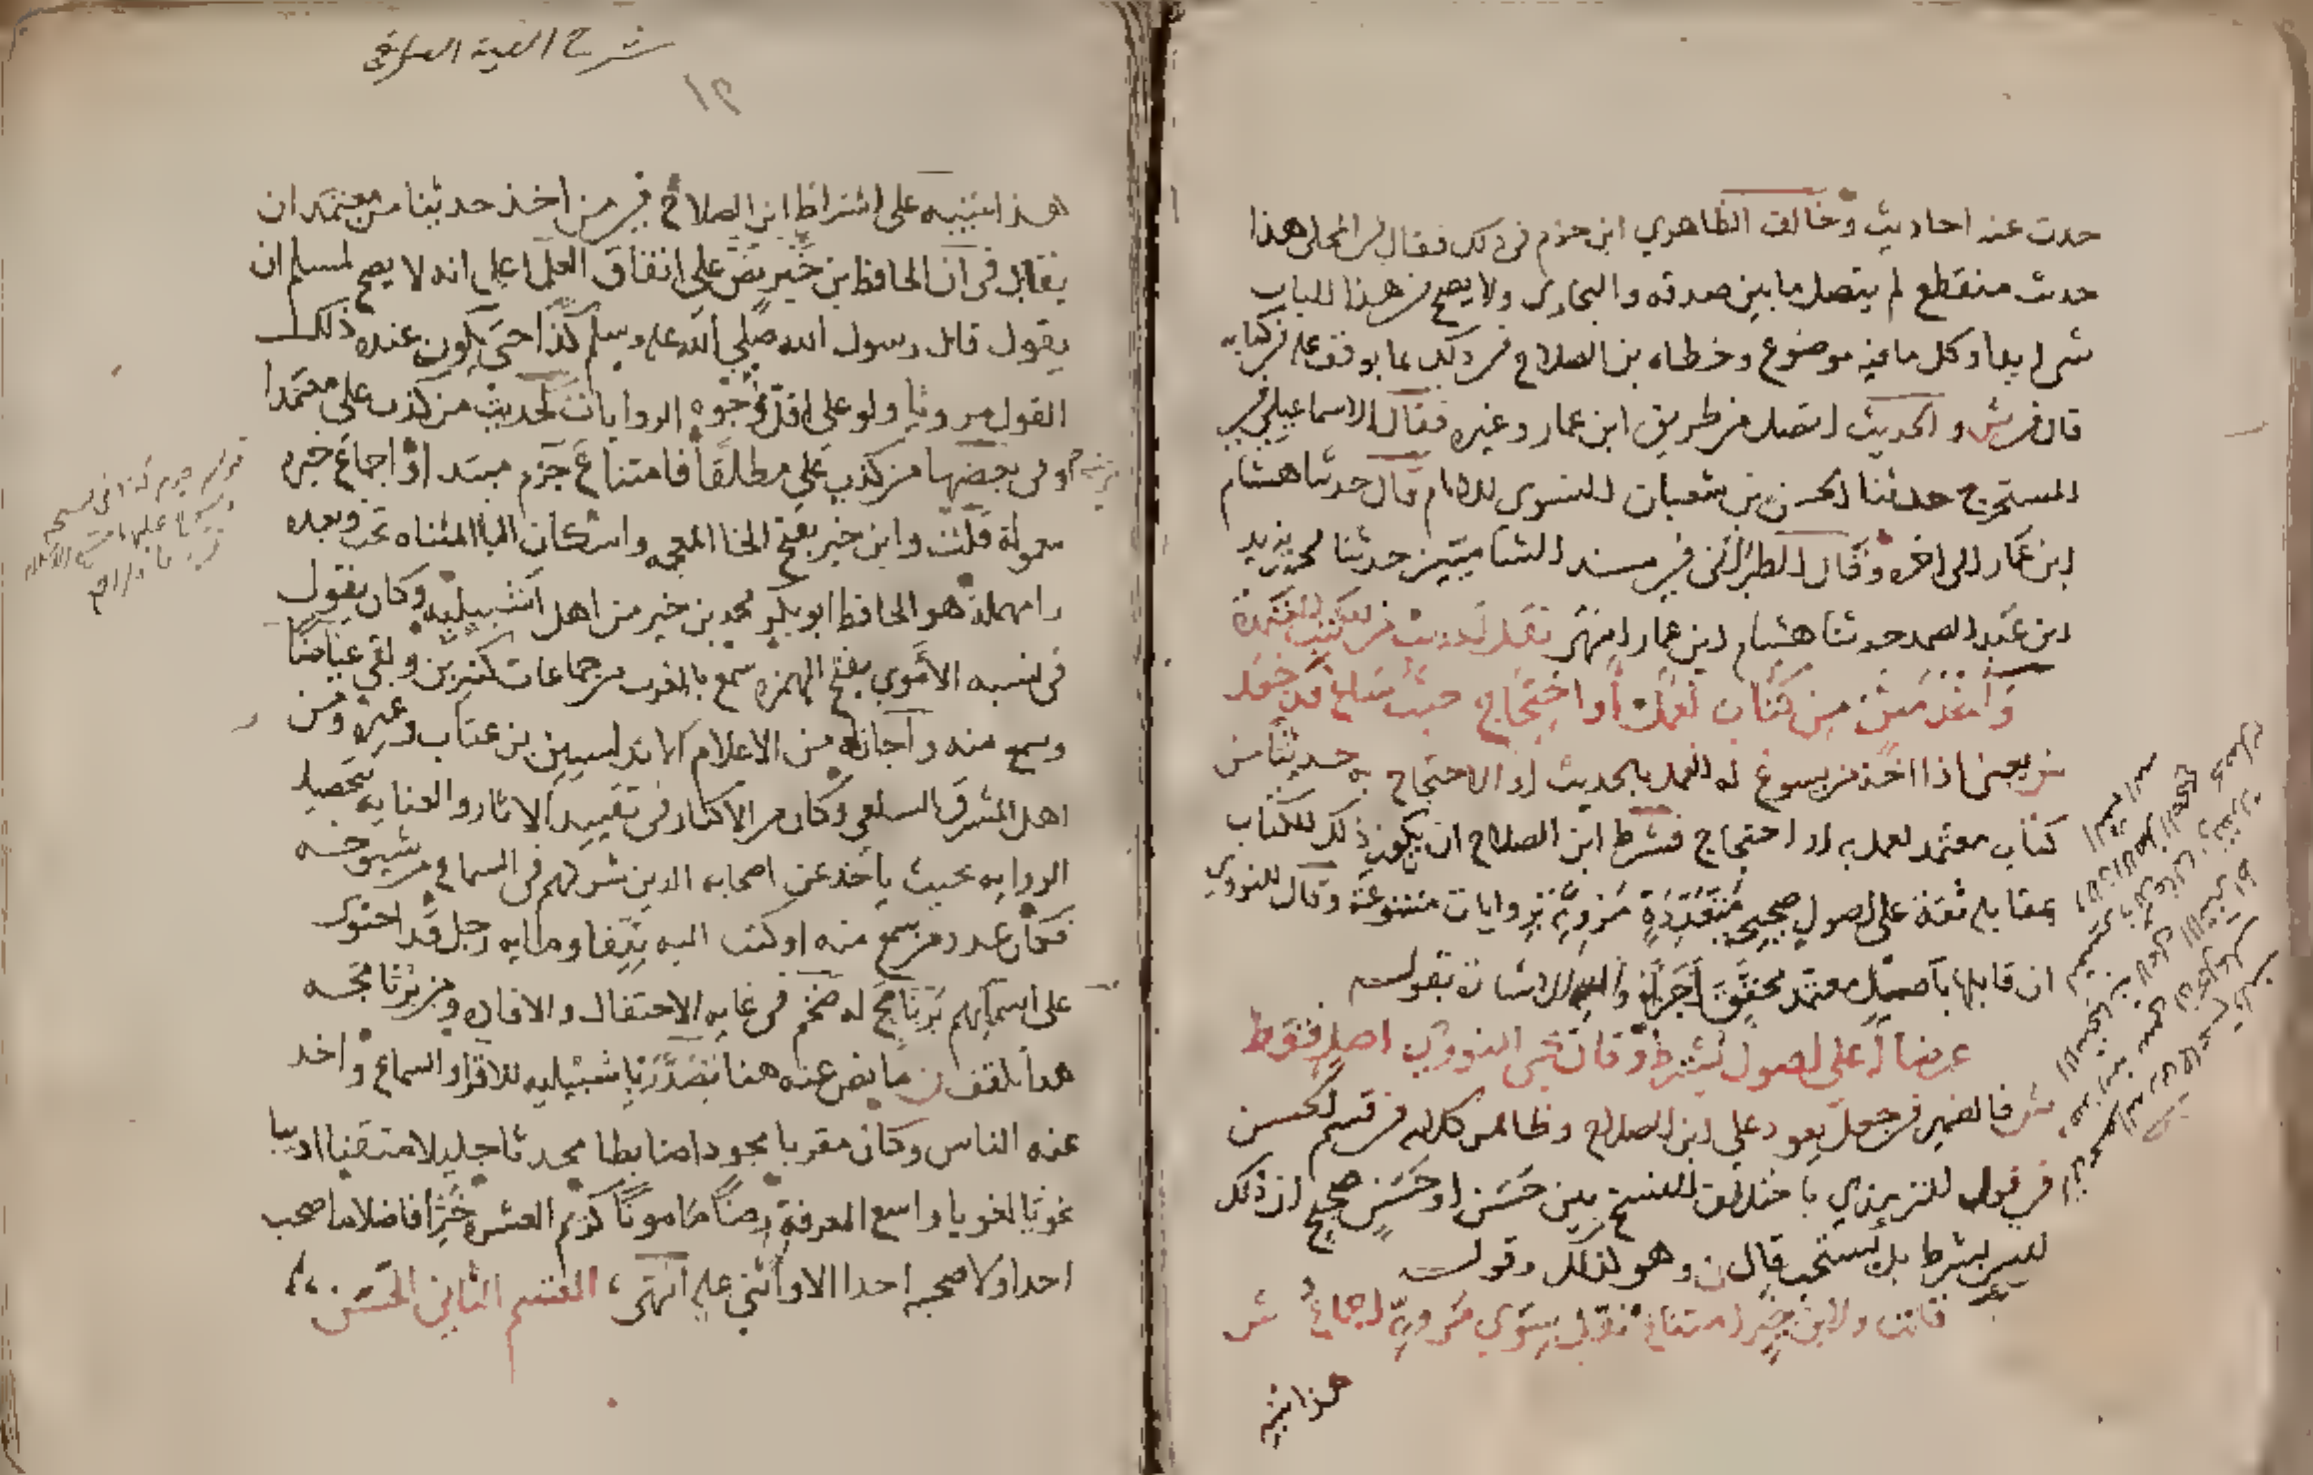 حدث عنه احاديث وخالف الظاهري ابن حزم في ذلك فقال في المحلى هذا
حديث منقطع لم يتصل ما بين صدقه والبخاري ولا يصح في هذا الباب
شي ابدا وكل ما فيه موضوع وخطاه بن الصلاح في ذلك بما يوقف عليه في كتابه
قال ش والحديث اتصل من طريق ابن عمار وغيره فقال الاسماعيلي في
المستخرج حدثنا الحسن بن سفيان النسوي الامام قال حدثنا هشام
ابن عمار الى اخره وقال الطبراني في مسند الشاميين حدثنا محمد بن يزيد
ابن عبد الصمد حدثنا هشام ابن عمار انتهى نقل الحديث من الكتب المعتمدة
وأخذ متن من كتاب لعمل أو احتجاج حيث ساغ قد جعل
ش يعني اذا اخذ من يسوغ له العمل بالحديث او الاحتجاج به حديثا من
كتاب معتمد لعمل به او احتجاج فشرط ابن الصلاح ان يكون ذلك الكتاب
بمقابلة ثقة على اصول صحيحة متعددة مروية بروايات متنوعة وقال النووي
ان قابلها بأصل معتمد محقق أجزأه واليه الاشارة بقوله
عرضا له على اصول يشترط وقال يحيى النووي اصل فقط
ش فالضمير في جعل يعود على ابن الصلاح وظاهر كلامه في قسم الحسن
في قول الترمذي باختلاف النسخ بين حسن او حسن صحيح ان ذلك
ليس بشرط بل يستحب قال ن وهو كذلك وقوله
قلت ولابن خير امتناع نقل سوى مرويه اجماع ش
هذا تنبيه
شرح الفية العراقي
١٢
هذا تنبيه على اشتراط ابن الصلاح في من اخذ حديثا من معتمد ان
يقابل في أن الحافظ بن خير نص على اتفاق العلما على انه لا يصح لمسلم ان
يقول قال رسول الله صلى الله عليه وسلم كذا حتى يكون عنده ذلك
القول مرويا ولو على اقل وجوه الروايات لحديث من كذب علي متعمدا
وفي بعضها من كذب علي مطلقا فامتناع جزم مبتدا واجماع خبره
معمولة قلت وابن خير بفتح الخا المعجمه واسكان اليا المثناه تحت وبعده
را مهملة هو الحافظ ابو بكر محمد بن خير من اهل اشبيليه وكان يقول
في نسبه الأموي بفتح الهمزه سمع بالمغرب من جماعات كثيرين ولقي عياضا
وسمع منه واجازله من الاعلام الاندلسيين بن عتاب وغيره ومن
اهل المشرق السلفي وكان من الاكثار في تقييد الاثار والعنايه بتحصيل
الروايه بحيث ياخذ عن اصحابه الذين شركهم في السماع من شيوخه
فكان عدد من سمع منه او كتب اليه نيفا ومايه رجل قد احتوى
على اسمايهم برنامج له ضخم في غايه الاحتفال والافاده ومن برنامجه
هذا تلقف ن ما نص عنه هنا تصدر باشبيليه للاقرا والسماع واخذ
عنه الناس وكان مقريا مجودا ضابطا محدثا جليلا متقنا اديبا
نحويا لغويا واسع المعرفة رضا مامونا كريم العشره خيرا فاضلا ما صحب
احدا ولا صحبه احد الا واثنى عليه انتهى، القسم الثاني الحسن